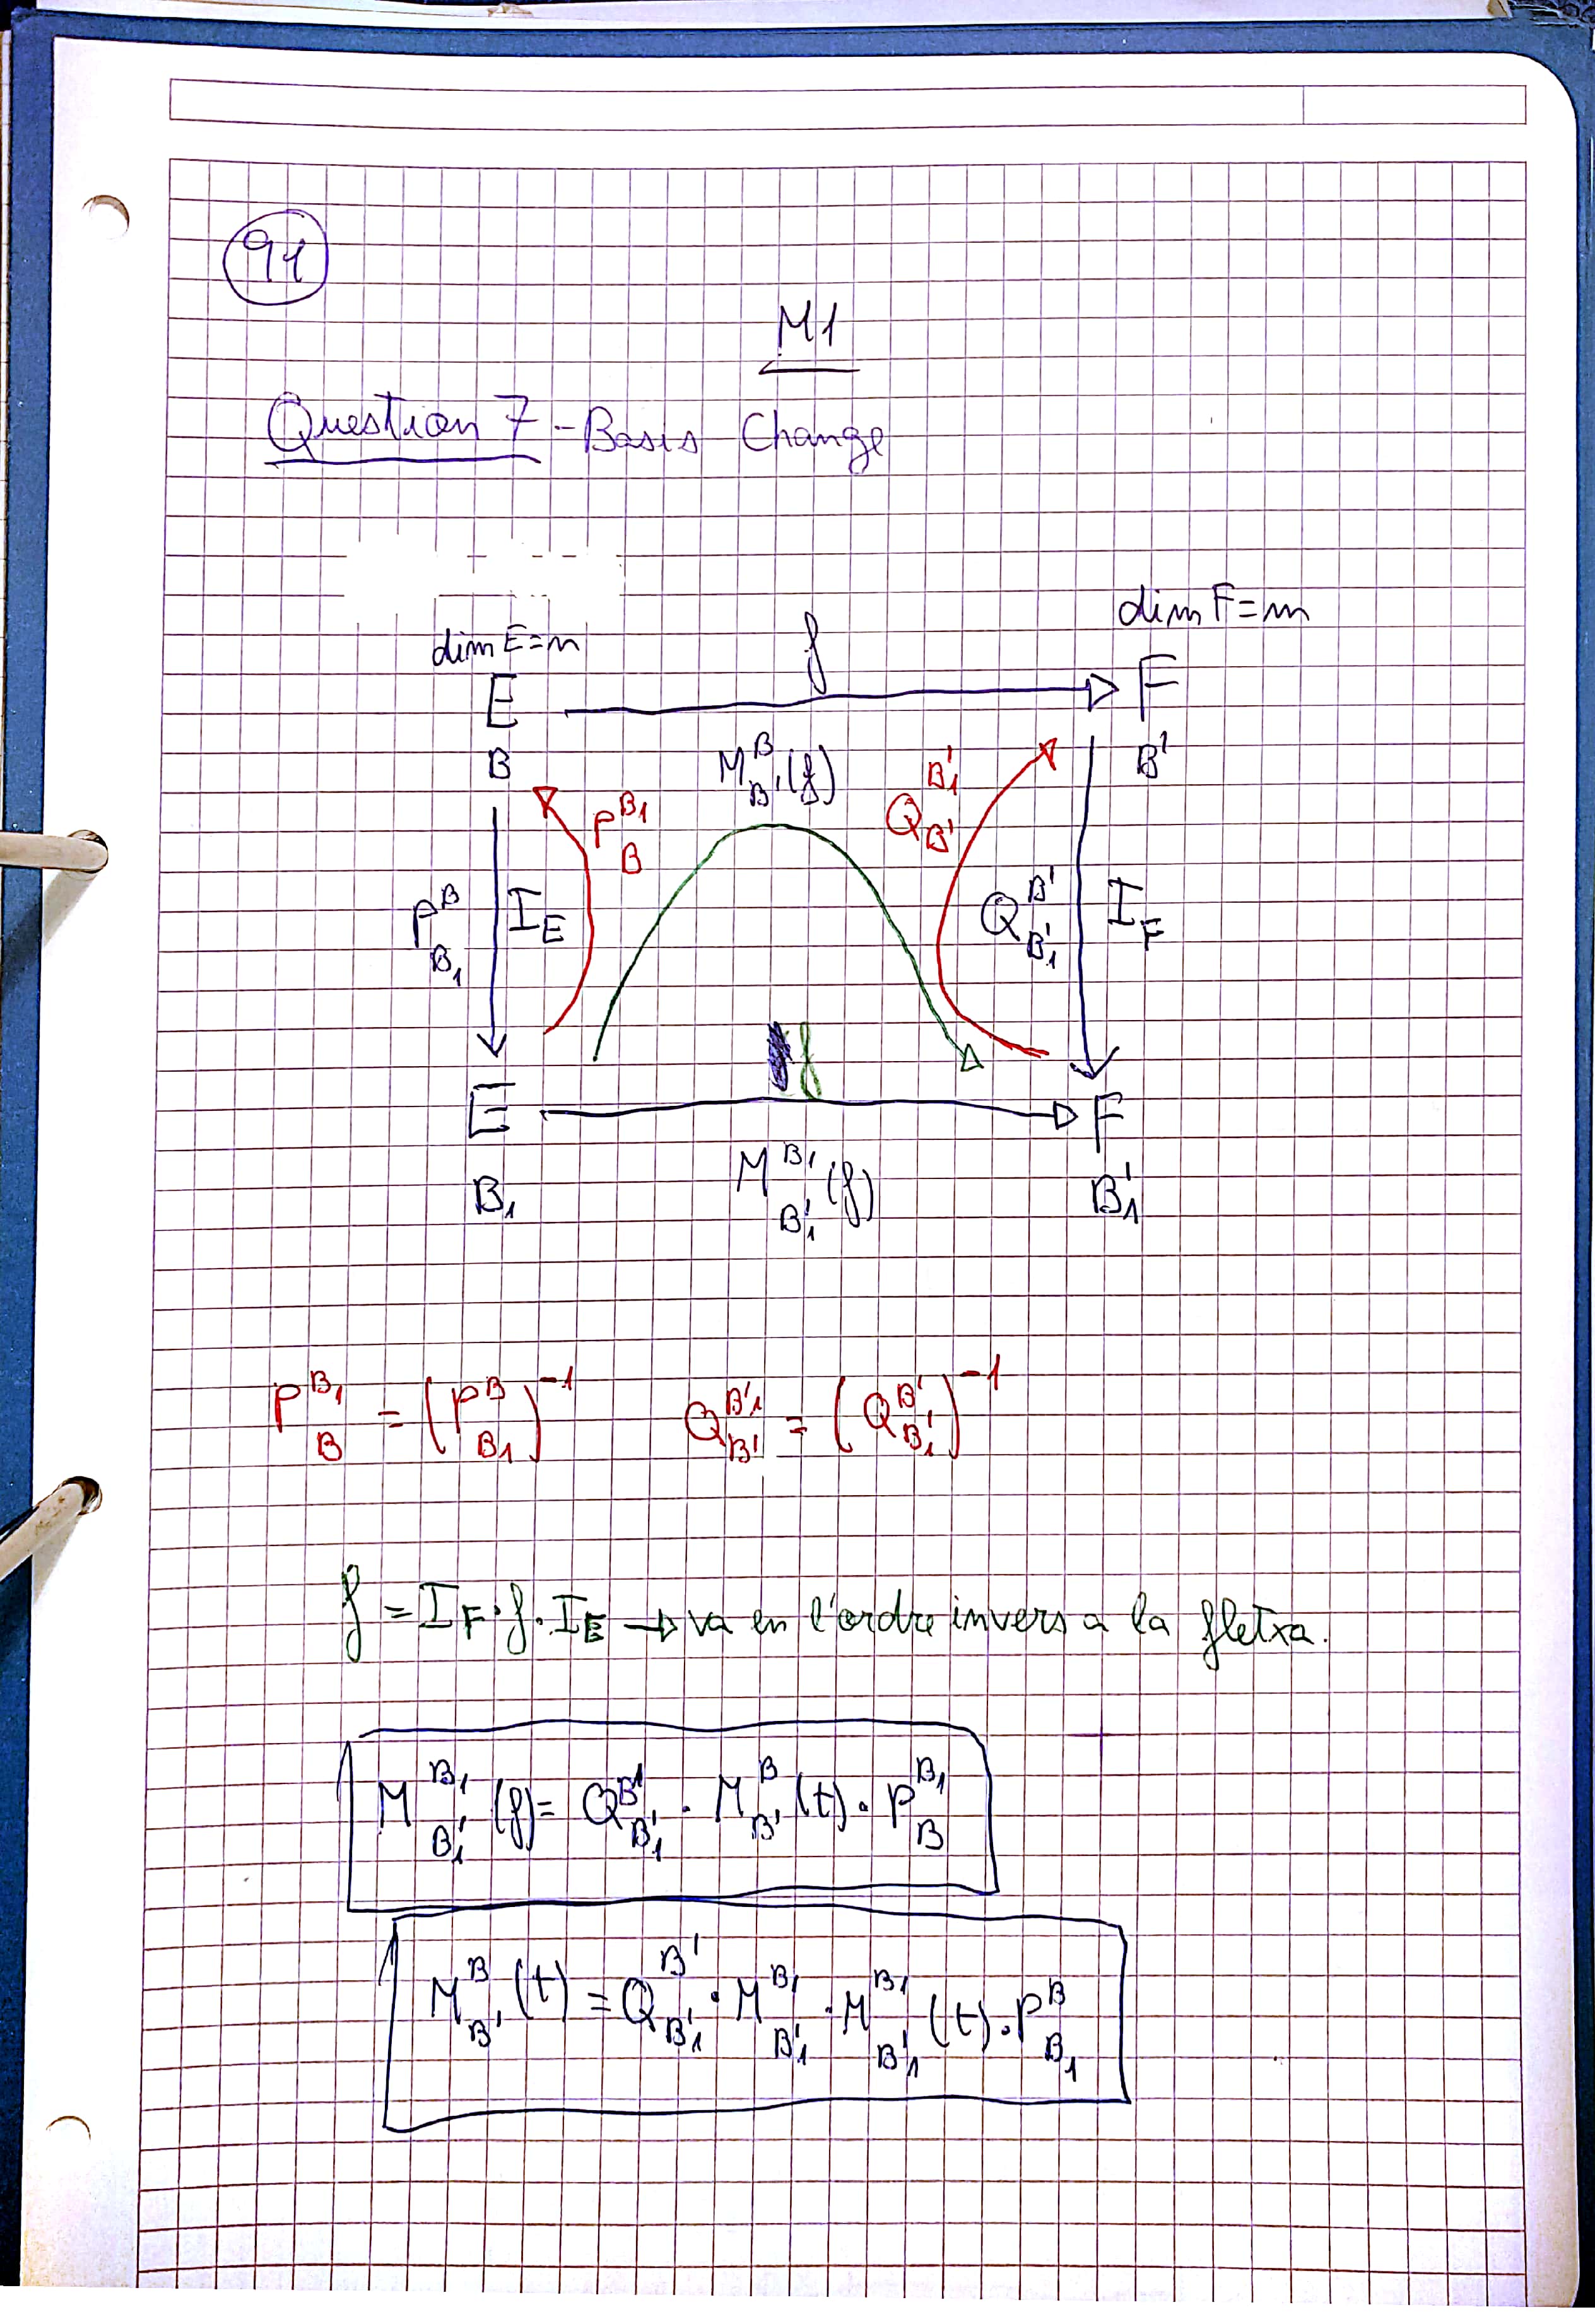 91
M1
Question 7 - Basis Change
dim E=n
dim F=m
E
f
F
B
M^B_B'(f)
B'
P^B1_B
Q^B'1_B'
P^B_B1
I_E
Q^B'_B'1
I_F
f
E
F
B1
M^B1_B'1(f)
B'1
P^B1_B = (P^B_B1)^-1 Q^B'1_B' = (Q^B'_B'1)^-1
f = I_F · f · I_E → va en l'ordre invers a la fletxa.
M^B1_B'1(f) = Q^B'_B'1 · M^B_B'(t) · P^B1_B
M^B_B'(t) = Q^B'_B'1 · M^B1_B'1 · M^B1_B'1(t) · P^B_B1